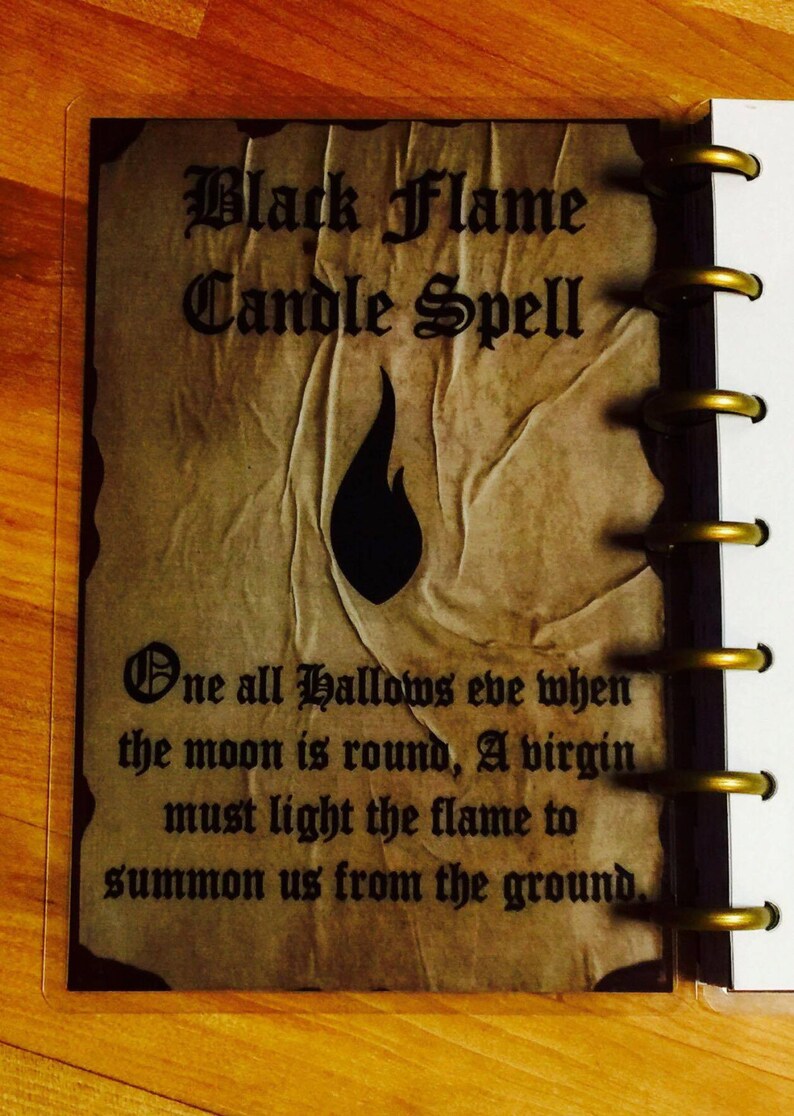 Black Flame
Candle Spell
One all Hallows eve when
the moon is round, A virgin
must light the flame to
summon us from the ground.